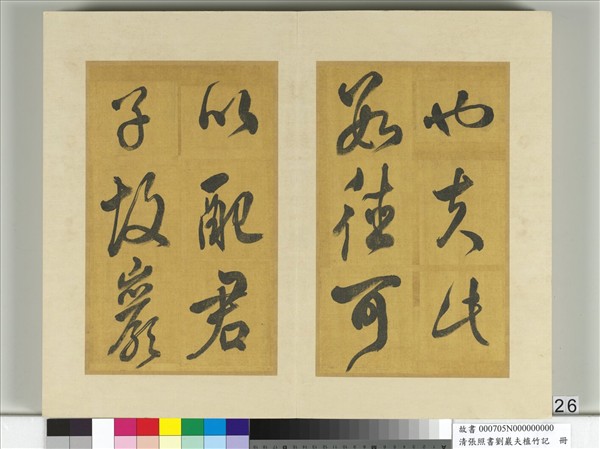 也夫此
數德可
以配君
子故巖
26
故書 000705N000000000
清張照書劉巖夫植竹記 冊